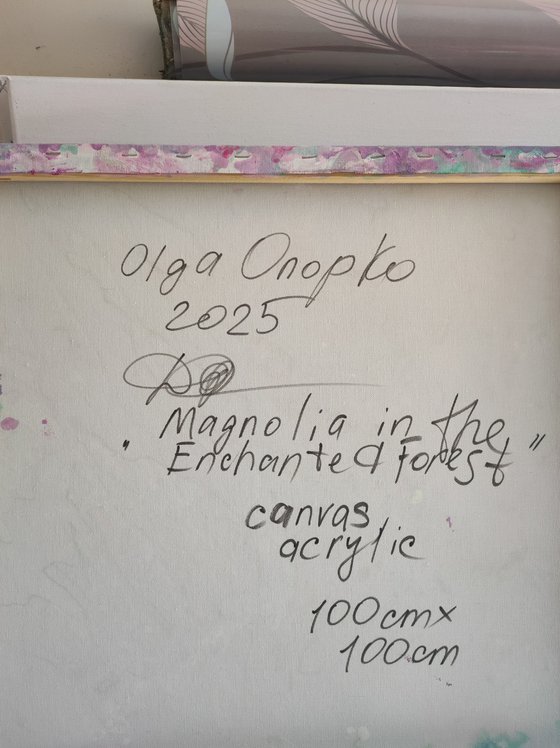 Olga Onopko
2025
„ Magnolia in the
Enchanted Forest "
canvas,
acrylic
100cm x
100cm